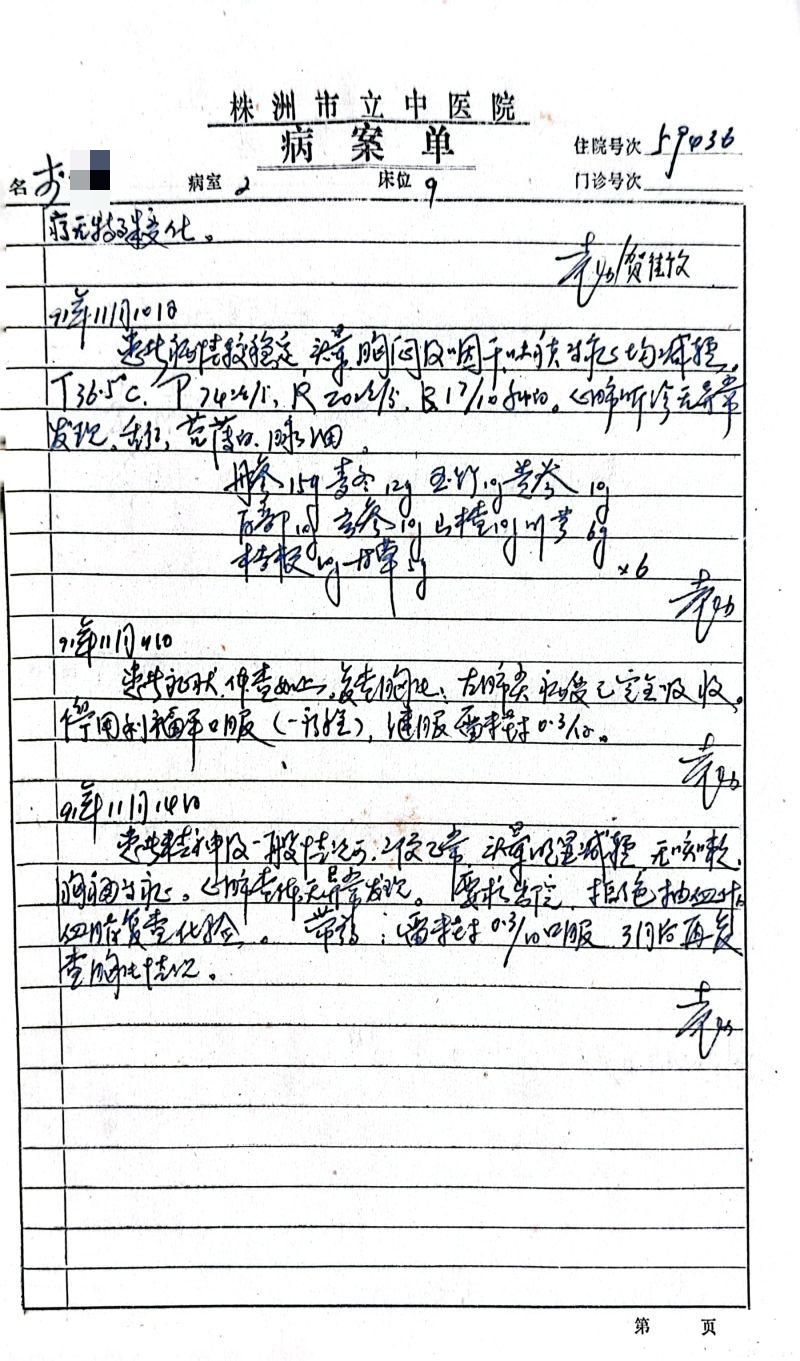 株洲市立中医院
病案单
住院号次 59436
名 李 病室 2 床位 9 门诊号次
疗无特殊变化。
袁 /贺佳
91年11月10日
患者病情较稳定,头晕胸闷及咽干咳痰 均减轻。
T36.5℃, P 74次/分, R 20次/分, B.17/10 。心肺听诊无异常
发现。舌红,苔薄白,脉细。
丹参15g 麦冬12g 玉竹10g 党参10g
百部10g 玄参10g 山楂10g 川芎6g
桔梗10g 甘草5g ×6
袁
91年11月11日
患者症状、体查如上。复查胸片:左肺尖病变已完全吸收。
停用利福平口服 ,继服雷米封0.3/日。
袁
91年11月14日
患者精神及一般情况可,二便正常,头晕明显减轻,无咳嗽、
胸痛 。心肺查体无异常发现。要求出院,拒绝抽血
复查化验。带药:雷米封0.3/日口服 3月后再复
查胸片情况。
袁
第 页